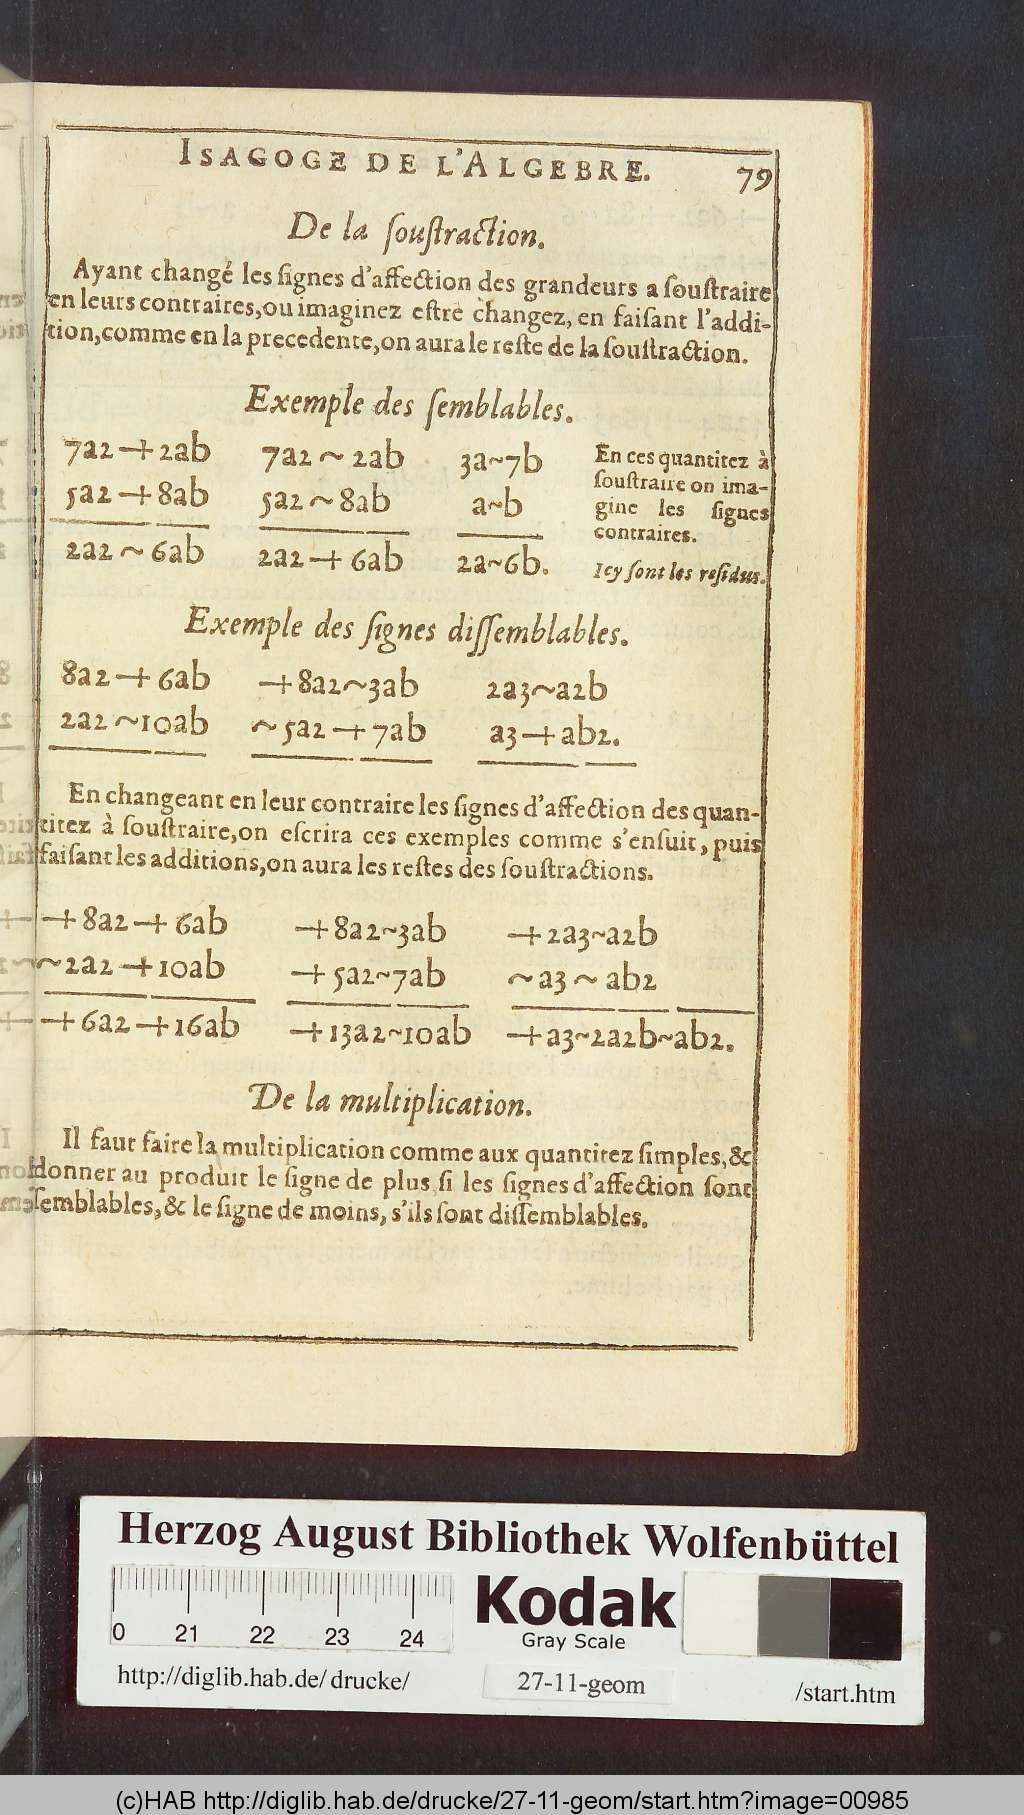 ISAGOGE DE L'ALGEBRE. 79
De la ſouſtraction.
Ayant changé les ſignes d'affection des grandeurs a ſouſtraire
en leurs contraires, ou imaginez eſtre changez, en faiſant l'addi-
tion, comme en la precedente, on aura le reſte de la ſouſtraction.
Exemple des ſemblables.
7a2 + 2ab 7a2 ~ 2ab 3a~7b
5a2 + 8ab 5a2 ~ 8ab a~b
2a2 ~ 6ab 2a2 + 6ab 2a~6b.
En ces quantitez à
ſouſtraire on ima-
gine les ſignes
contraires.
Icy ſont les reſidus.
Exemple des ſignes diſſemblables.
8a2 + 6ab +8a2~3ab 2a3~a2b
2a2 ~10ab ~5a2 + 7ab a3 + ab2.
En changeant en leur contraire les ſignes d'affection des quan-
titez à ſouſtraire, on eſcrira ces exemples comme s'enſuit, puis
faiſant les additions, on aura les reſtes des ſouſtractions.
+8a2 + 6ab +8a2~3ab +2a3~a2b
~2a2 +10ab +5a2~7ab ~a3 ~ ab2
+6a2 +16ab +13a2~10ab +a3~2a2b~ab2.
De la multiplication.
Il faut faire la multiplication comme aux quantitez ſimples, &
donner au produit le ſigne de plus ſi les ſignes d'affection ſont
ſemblables, & le ſigne de moins, s'ils ſont diſſemblables.
Herzog August Bibliothek Wolfenbüttel
0 21 22 23 24
Kodak
Gray Scale
http://diglib.hab.de/drucke/ 27-11-geom /start.htm
(c)HAB http://diglib.hab.de/drucke/27-11-geom/start.htm?image=00985